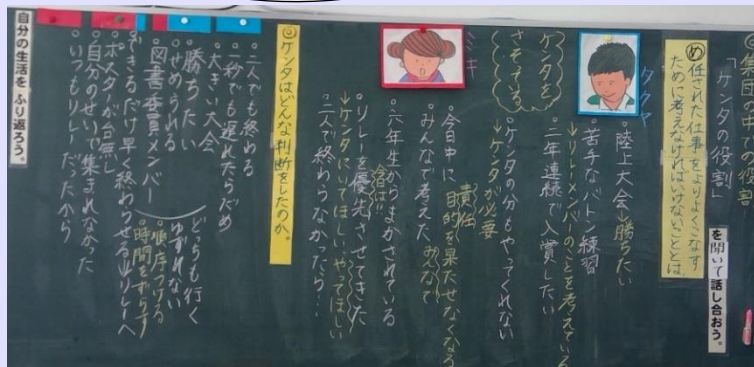 ◎集団の中での役割
「ケンタの役割」
を聞いて話し合おう。
め 任された仕事をよりよくこなす
ために考えなければいけないこととは
タクヤ
陸上大会→勝ちたい
・苦手なバトン練習
↓リレーメンバーのことを考えている
・二年連続で入賞したい
・ケンタの分もやってくれない
↓ケンタが必要
ケンタを
さそている
ミキ
・今日中に
目的を果たせなくなる
責任
・みんなで考えた
みんなで
・六年生からまかされている
今日は
・リレーを優先させてきた
↓ケンタにいてほしい、やってほしい
・二人で終わらなかったら…
◎ケンタはどんな判断をしたのか。
・二人でも終わる
・一秒でも遅れたらだめ
・大きい大会
・勝ちたい
・せめられる
・図書委員メンバー
・できるだけ早く終わらせる→リレーへ
・ポスターが台無し
・自分のせいで集まれなかった
・いつもリレーだったから
どちらも行く
ゆずれない
・順序つける
・時間をずらす
自分の生活をふり返ろう。